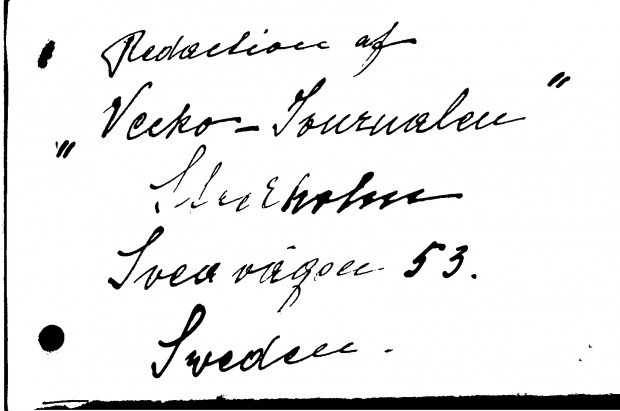 Redaction af
„Vecko-Journalen”
Stockholm
Sveavägen 53.
Sweden.